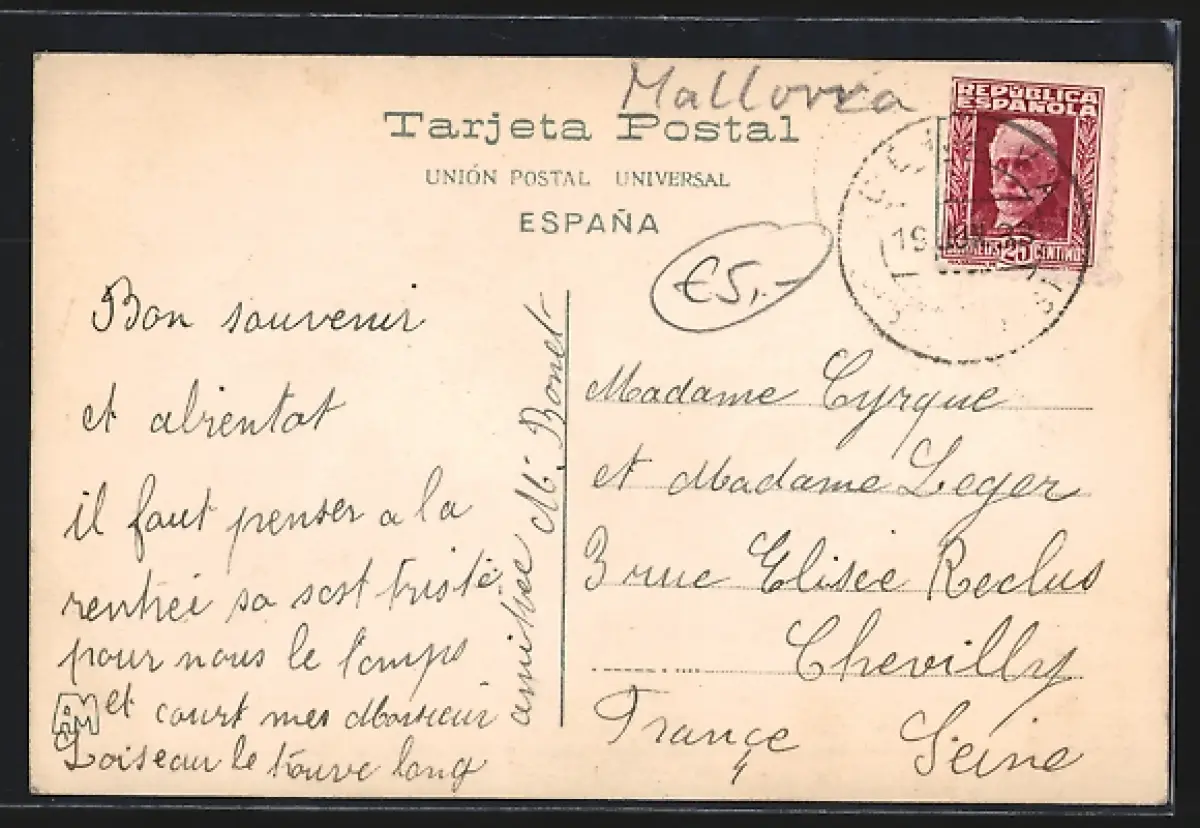 Mallorca
Tarjeta Postal
UNIÓN POSTAL UNIVERSAL
ESPAÑA
REPÚBLICA
ESPAÑOLA
25 CENTIMOS
19
€5,-
Bon souvenir
et abientot
il faut penser a la
rentrei sa sest triste
pour nous le temps
et court mes Monsieur
Loiseau le trouve long
amitiee Mr. Bonet
AM
Madame Cyrque
et Madame Leger
3 rue Elisée Reclus
Chevilly
Françe Seine